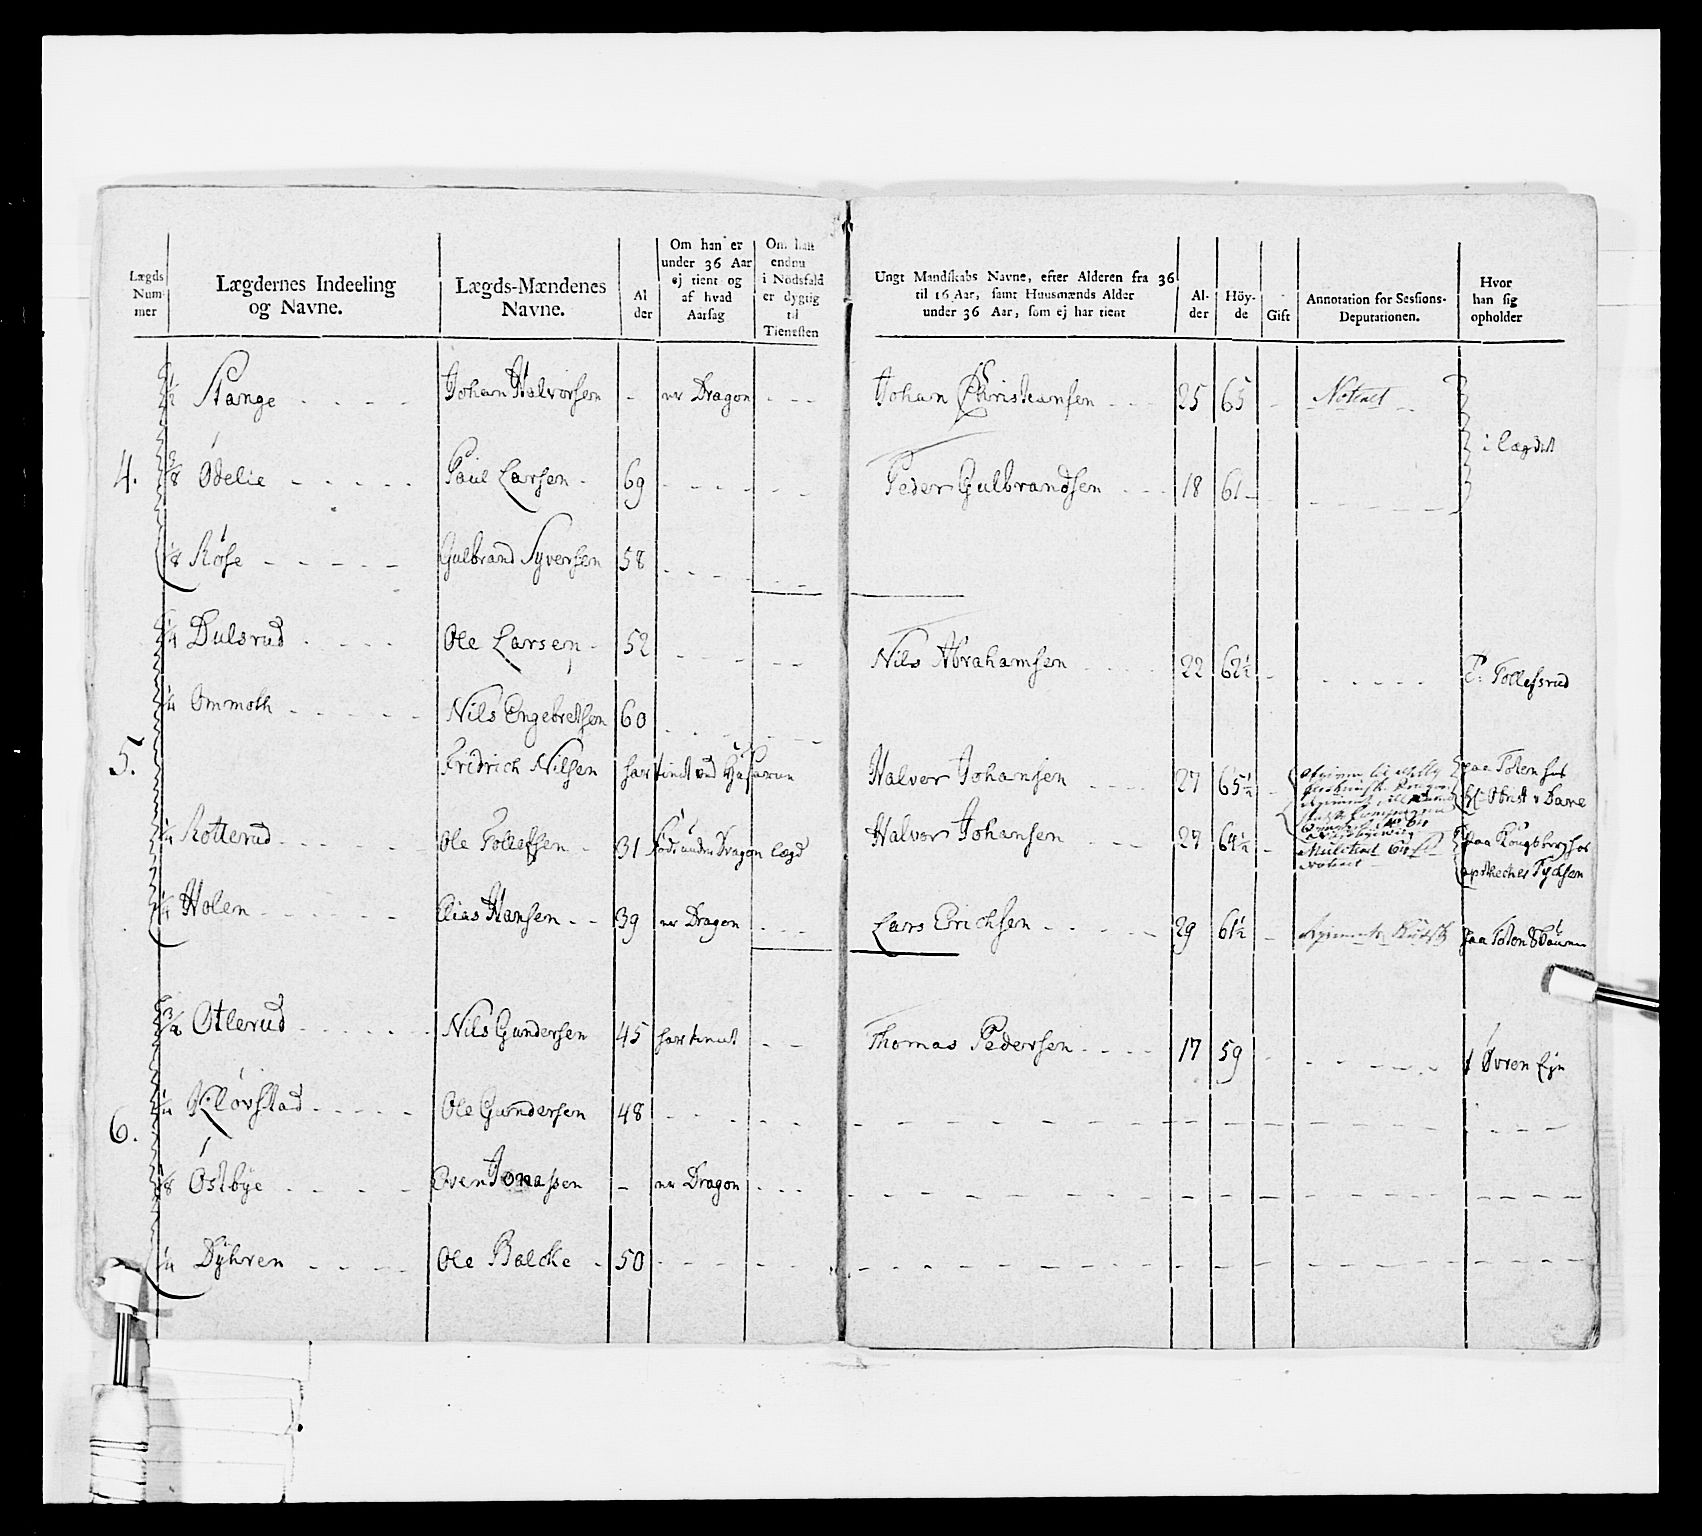 Lægds Num- mer
Lægdernes Indeeling og Navne.
Lægds-Mændenes Navne.
Al der
Om han er under 36 Aar ej tient og af hvad Aarsag
Om han endnu i Nödsfald er dygtig til Tienesten
Ungt Mandskabs Navne, efter Alderen fra 36 til 16 Aar, samt Huusmænds Alder under 36 Aar, som ej har tient
Al- der
Höy- de
Gift
Annotation for Sessions- Deputationen.
Hvor han sig opholder
1/2 Stange - - - - Johan Halvorsen - er Dragon - - - Johan Christiansen - - - 25 65 - Noteret
i Lægdet
4. 3/8 Ødelie - - - - - Paul Larsen - 69 - - - - - - Peder Gulbrandsen - - - 18 61 - - - -
1/8 Røse - - - - - Gulbrand Syversen 58 - - - - - -
1/4 Dulsrud - - - - Ole Larsen - 52 - - - - - Nils Abrahamsen - - - - 22 62 1/2 - - - - - - P: Tollefsrud
1/4 Ommoth - - - - - Nils Engebretsen 60 - - - - - -
5. Fridrich Nilsen har tient ved Husarene Halvor Johansen - - - - 27 65 1/2 - paa Toten hos
Rotterud - - - - Ole Tollefsen - 31 Lægd Halvor Johansen - - - 27 64 1/2 -
1/4 Holen - - - - - Elias Hansen - - 39 er Dragon - - - Lars Erichsen - - - - - 29 61 1/2 - paa Toten
Otlerud - - - - - Nils Gundersen 45 har tient - - Thomas Pedersen - - - - 17 59 - - - - - - Øvren
6. 1/4 Kløvstad - - - - - Ole Gundersen 48 - - - - - -
1/8 Østbye - - - - Even Jonassen - er Dragon - - -
1/4 Dyhren - - - - Ole Balcke - 50 - - - - - -